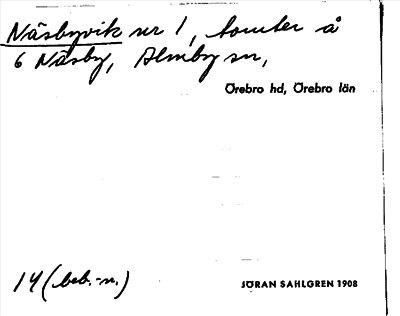 Näsbyvik nr 1, tomter å
6 Näsby, Almby sn,
Örebro hd, Örebro län
14 (beb.-n.)
JÖRAN SAHLGREN 1908